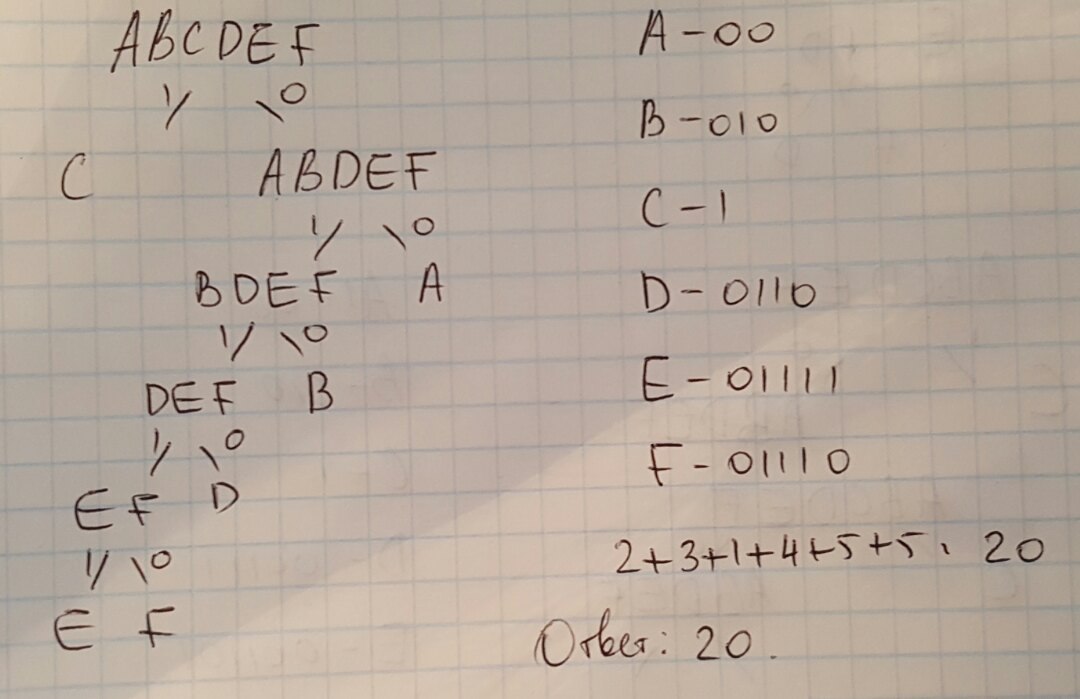 ABCDEF
1/ \0
C ABDEF
1/ \0
BDEF A
1/ \0
DEF B
1/ \0
EF D
1/ \0
E F
A-00
B-010
C-1
D-0110
E-01111
F-01110
2+3+1+4+5+5 = 20
Ответ: 20.